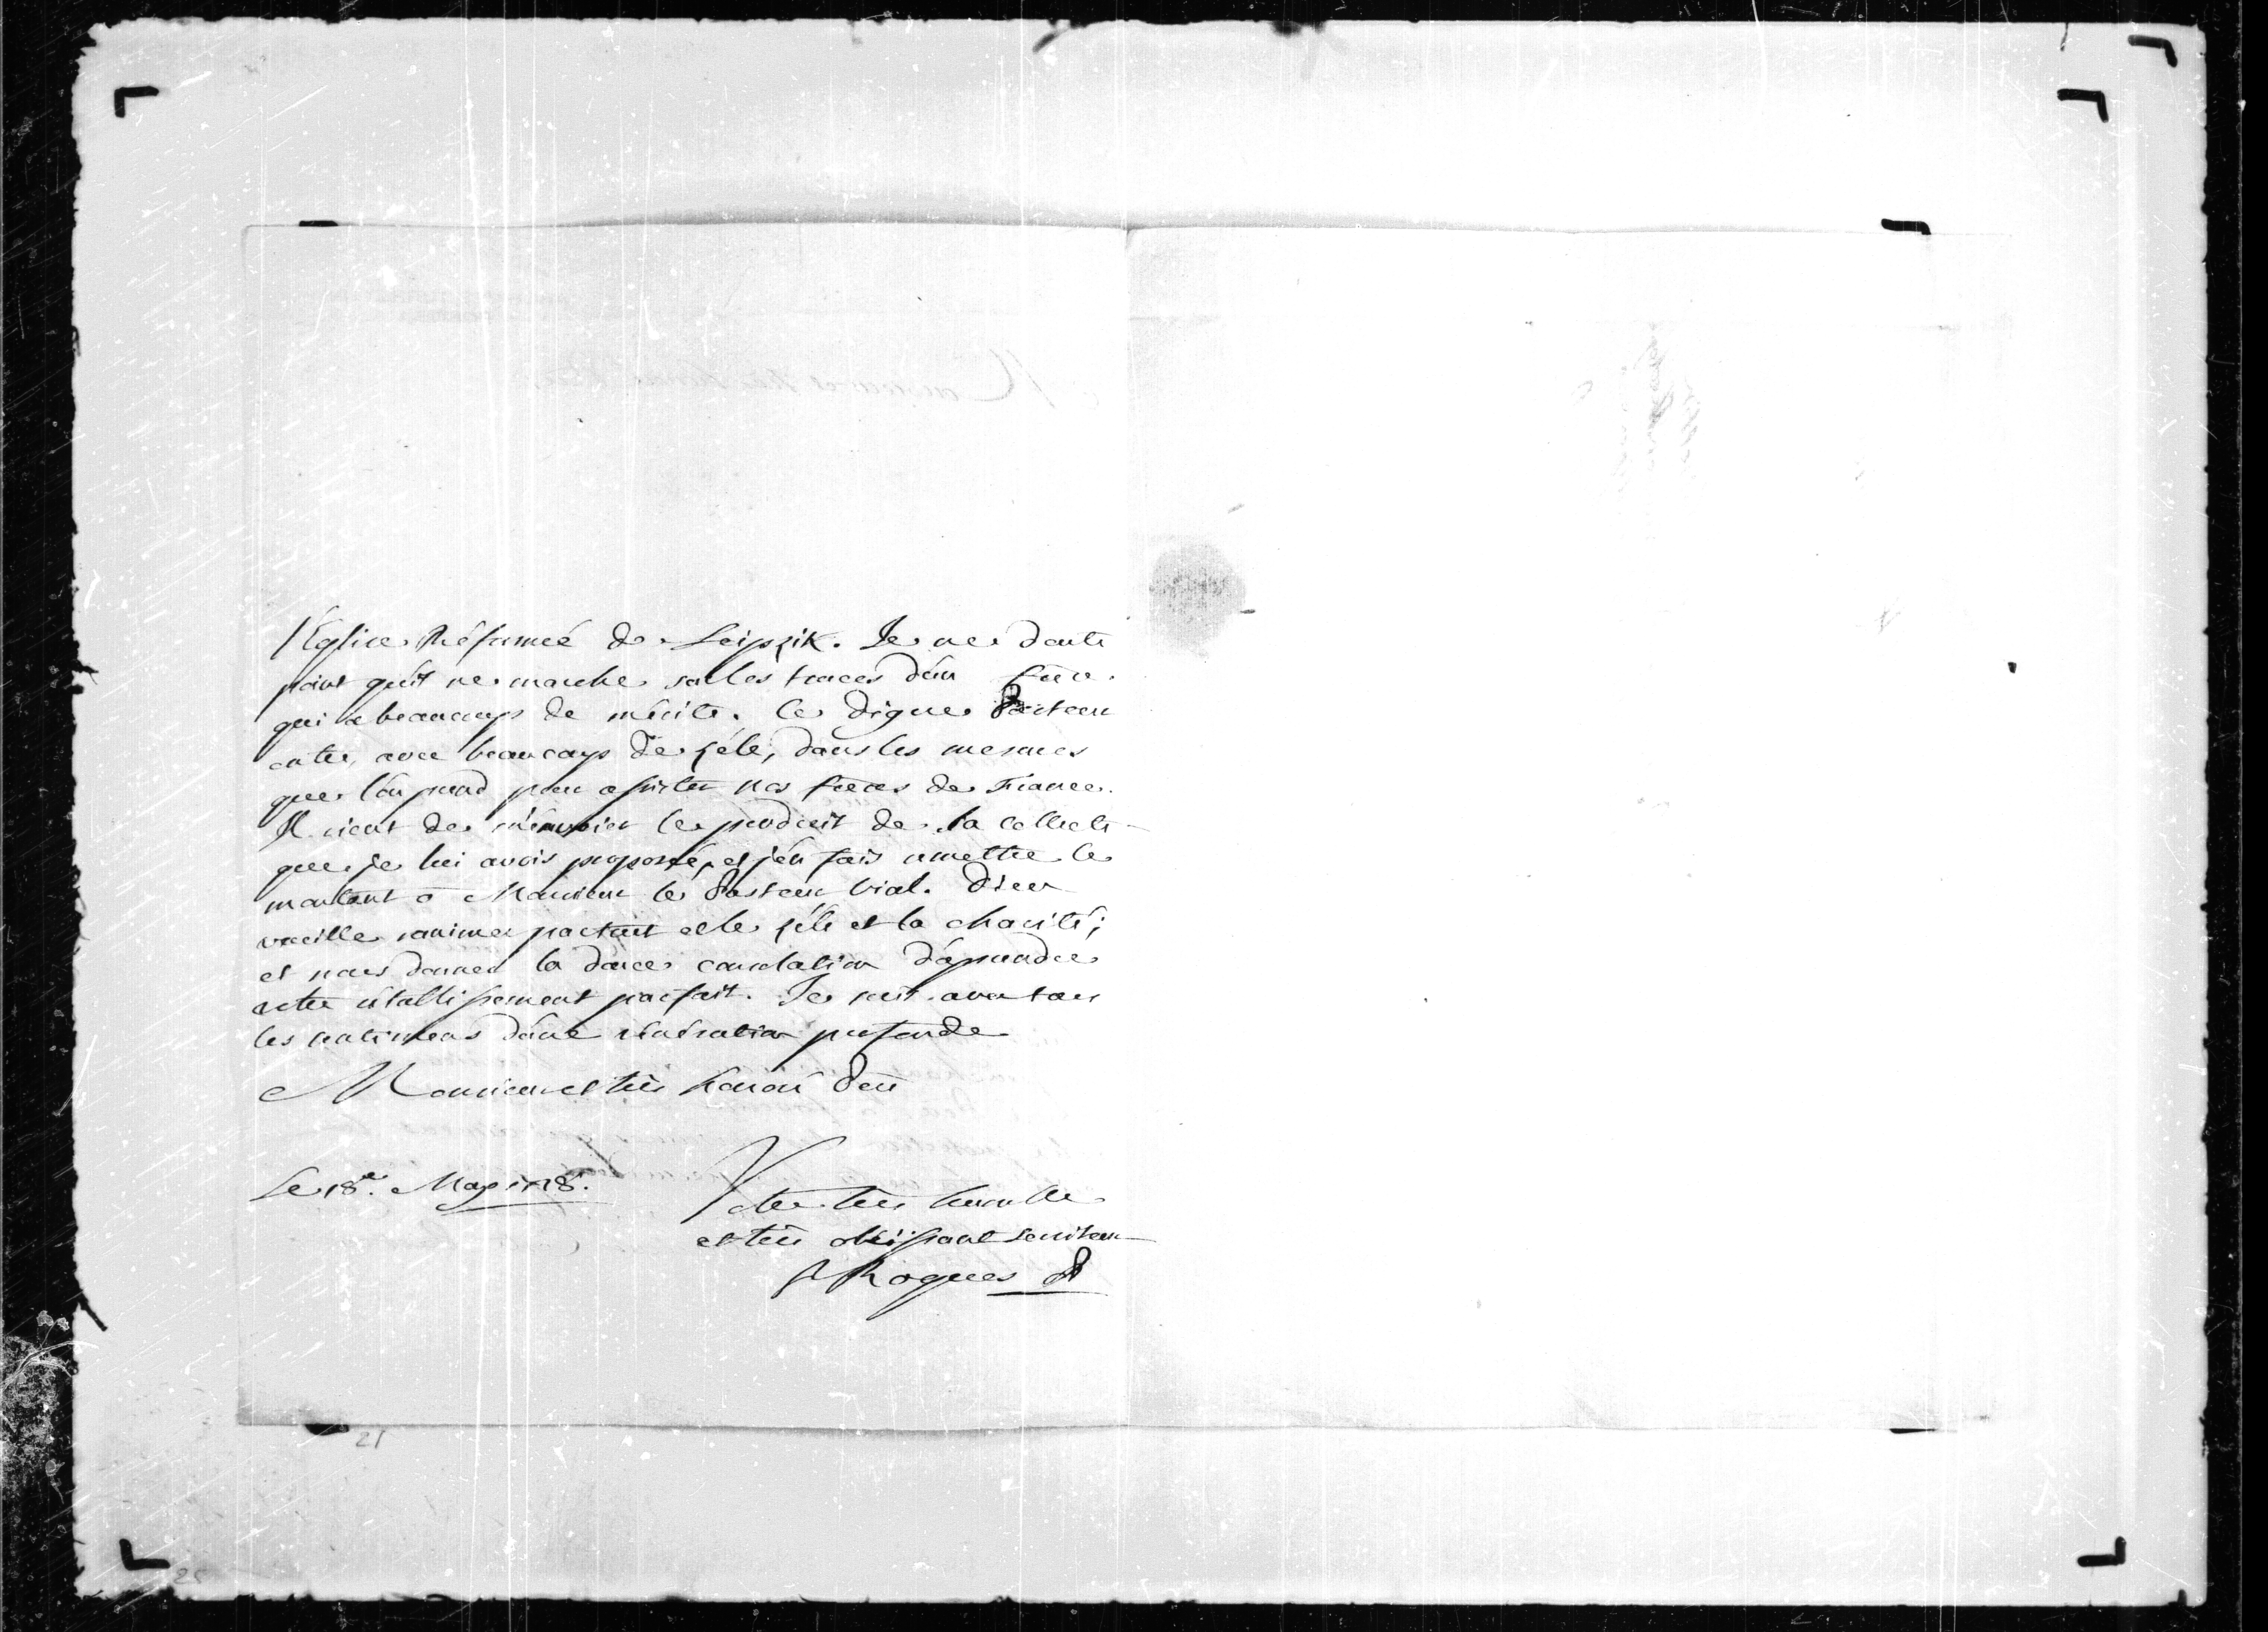 l'Eglise Réformée de Leipzik. Je ne doute
point qu'il ne marche sur les traces d'un frere
qui a beaucoup de mérite. Ce digne Pasteur
entre, avec beaucoup de zéle, dans les mesures
que l'on prend pour assister nos freres de France.
Il vient de m'envoier le produit de la collecte
que je lui avois proposée, et j'en fais remettre le
montant à Monsieur le Pasteur Vial. Dieu
veuille ranimer partout et le zéle et la charité;
et nous donner la douce consolation d'aprendre
votre rétablissement parfait. Je suis avec tous
les sentimens d'une vénération profonde
Monsieur et très honoré Pere
Le 18e. May 1718.
Votre très humble
et très obéissant serviteur
Roques P
21
25